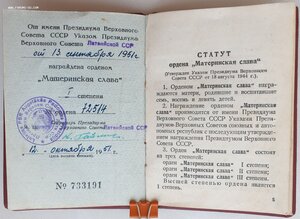 От имени Президиума Верховного
Совета СССР Указом Президиума
Верховного Совета Латвийской ССР
от 13 сентября 1951 г.
награждена орденом
„Материнская слава"
I степени
орден № 72514
Президиума
Верховного Совета Латвийской ССР
12 октября 1951 г.
№ 733191
СТАТУТ
ордена „Материнская слава"
(Утвержден Указом Президиума Верховного
Совета СССР от 18 августа 1944 г.)
1. Орденом „Материнская слава" награждаются
матери, родившие и воспитавшие
семь, восемь и девять детей.
2. Награждение орденом „Материнская
слава" производится от имени Президиума
Верховного Совета СССР Указами Президиумов
Верховных Советов союзных и автономных
республик с последующим утверждением
Указом Президиума Верховного Совета СССР.
3. Орден „Материнская слава" состоит
из трёх степеней:
орден „Материнская слава" I степени;
орден „Материнская слава" II степени;
орден „Материнская слава" III степени.
Высшей степенью ордена является
I степень.
5